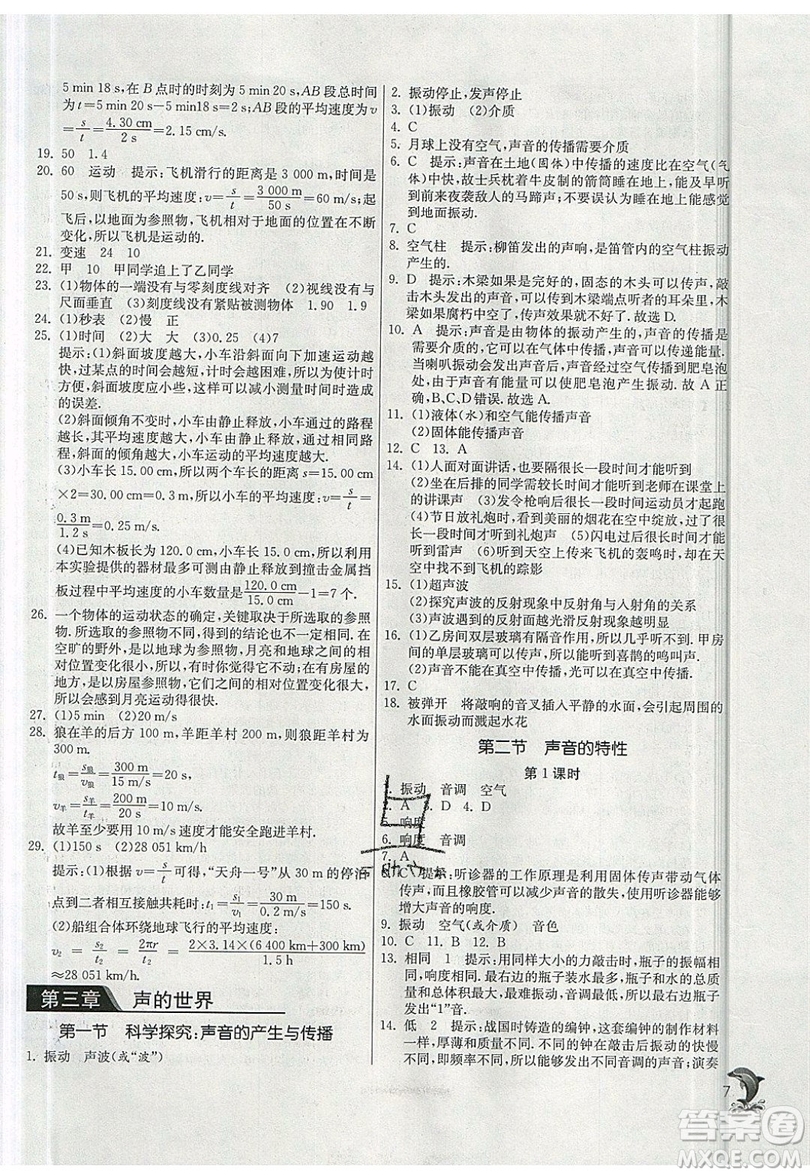 5 min 18 s,在 B 点时的时刻为 5 min 20 s,AB 段总时间
为 t=5 min 20 s-5 min18 s=2 s;AB 段的平均速度为 v
=s/t=4.30 cm/2 s=2.15 cm/s.
19. 50 1.4
20. 60 运动 提示:飞机滑行的距离是 3 000 m,时间是
50 s,则飞机的平均速度:v=s/t=3 000 m/50 s=60 m/s;起
飞后,以地面为参照物,飞机相对于地面的位置在不断
变化,所以飞机是运动的.
21. 变速 24 10
22. 甲 10 甲同学追上了乙同学
23. (1)物体的一端没有与零刻度线对齐 (2)视线没有与
尺面垂直 (3)刻度线没有紧贴被测物体 1.90 1.9
24. (1)秒表 (2)慢 正
25. (1)时间 (2)大 大 (3)0.25 (4)7
提示:(1)斜面坡度越大,小车沿斜面向下加速运动越
快,过某点的时间会越短,计时会越困难,所以为使计时
方便,斜面坡度应小些,这样可以减小测量时间时造成
的误差.
(2)斜面倾角不变时,小车由静止释放,小车通过的路程
越长,其平均速度越大;小车由静止释放,通过相同的路
程,斜面的倾角越大,小车运动的平均速度越大.
(3)小车长 15.00 cm,则两个小车的距离 s=15.00 cm
×2=30.00 cm=0.3 m,所以小车的平均速度:v=s/t=
0.3 m/1.2 s=0.25 m/s.
(4)已知木板长为 120.0 cm,小车长 15.0 cm,所以利用
本实验提供的器材最多可测得由静止开始到撞击金属挡
板过程中平均速度的小车数量是=120.0 cm/15.0 cm-1=7 个.
26. 一个物体的运动状态的确定,关键取决于所选取的参照
物.所选取的参照物不同,得到的结论也不一定相同.在
空旷的野外,是以地球为参照物,月亮和地球之间的相
对位置变化不大,所以有时你觉得月亮不动;在院子里,
是以房屋作参照物,它们之间的相对位置变化很大,所
以,月亮移动得很快.
27. (1)5 min (2)20 m/s
28. 狼在羊的后方 100 m,羊距羊村 200 m,则狼距羊村
300 m.
t狼=s狼/v狼=300 m/15 m/s=20 s,
v羊=s羊/t羊=200 m/20 s=10 m/s.
故羊至少要用 10 m/s 速度才能安全跑进羊村.
29. (1)150 s (2)28 051 km/h
提示:(1)根据 v=s/t可得,“天舟一号”从 30 m 的停泊
点到二者相互接触共耗时:t1=s1/v1=30 m/0.2 m/s=150 s.
(2)船组合体环绕地球飞行的平均速度:
v=s2/t2=2πr/t2=2×3.14×(6 400 km+300 km)/1.5 h
≈28 051 km/h.
第三章 声的世界
第一节 科学探究:声音的产生与传播
1. 振动 声波(或“波”)
2. 振动停止,发声停止
3. (1)振动 (2)介质
4. C
5. 月球上没有空气,声音的传播需要介质
6. C 提示:声音在土地(固体)中传播的速度比在空气(气
体)中快,故士兵枕着牛皮制的箭筒睡在地上,能及早听
到前来夜袭敌人的马蹄声;不要误认为睡在地上,能感
觉到地面振动.
7. C
8. 空气柱 提示:柳笛发出的声响,是笛管内的空气柱振动
产生的.
9. D 提示:木梁如果是完好的,固态的木头可以传声,将
敲打发出的声音传到贴在木梁端听者的耳朵里,木头内
部如果腐朽空了,传声效果就不好了.故选 D.
10. A 提示:声音是由物体的振动产生的,声音的传播
需要介质,它可以在气体中传播,声音可以传递能量.
当喇叭振动会产生声音,声音经过空气传播到肥皂泡
上,声音具有能量,能够使得肥皂泡产生振动.故 A 正
确,B、C、D 错误.故选 A.
11. (1)液体(水)和空气能传播声音
(2)固体能传播声音
12. C 13. A
14. (1)人面对面讲话,也要隔很长一段时间才能听到
(2)坐在后排的同学需较长时间才能听到老师在课堂上
的讲课声 (3)发令枪响后很长时间运动员才起跑
(4)节日放礼炮时,看到美丽的烟花在空中绽放,过了很
长时间才能听到礼炮声响 (5)闪电过后很长时间才听
到雷声 (6)听到天空上传来飞机的轰鸣时,却找不到
飞机的踪影
15. (1)超声波
(2)探究声波的反射现象中反射角与入射角的关系
(3)声波遇到的反射面越光滑反射现象越明显
16. (1)乙房间双层玻璃有隔音作用,所以几乎听不到.甲房
间的单层玻璃可以传声,所以能够听到喜鹊的鸣叫声
(2)声音不能在真空中传播,所以双层玻璃可以隔音
17. C
18. 被弹开 将敲响的音叉插入平静的水面,会看到周围的
水面振动而溅起水花
第二节 声音的特性
第 1 课时
1. 振动 音调 空气
2. A 3. D 4. D
5. 响度
6. 响度 音调
7. A
8. C 提示:听诊器的工作原理是利用固体传声带动气体
传声,且橡胶管可以减少声音的散失,使用听诊器能够
提高声音的响度.
9. 振动 空气(或介质) 音色
10. C 11. B 12. B
13. 相同 1 提示:用相同大小的力敲击瓶子,瓶子的振幅
相同,响度相同.最右边的瓶子装水最多,瓶子与水的
总体积最大,最难振动,音调最低,所以最右边的瓶子发
出的声音为“1”音.
14. 低 2 提示:战国时铸造的编钟,这套编钟的制作材料
一样,厚薄和大小不一样.不同的钟在敲击时振动快慢
不同,即频率不同,所以能够发出不同音调的声音;演奏
7
答案卷
MXQE.COM